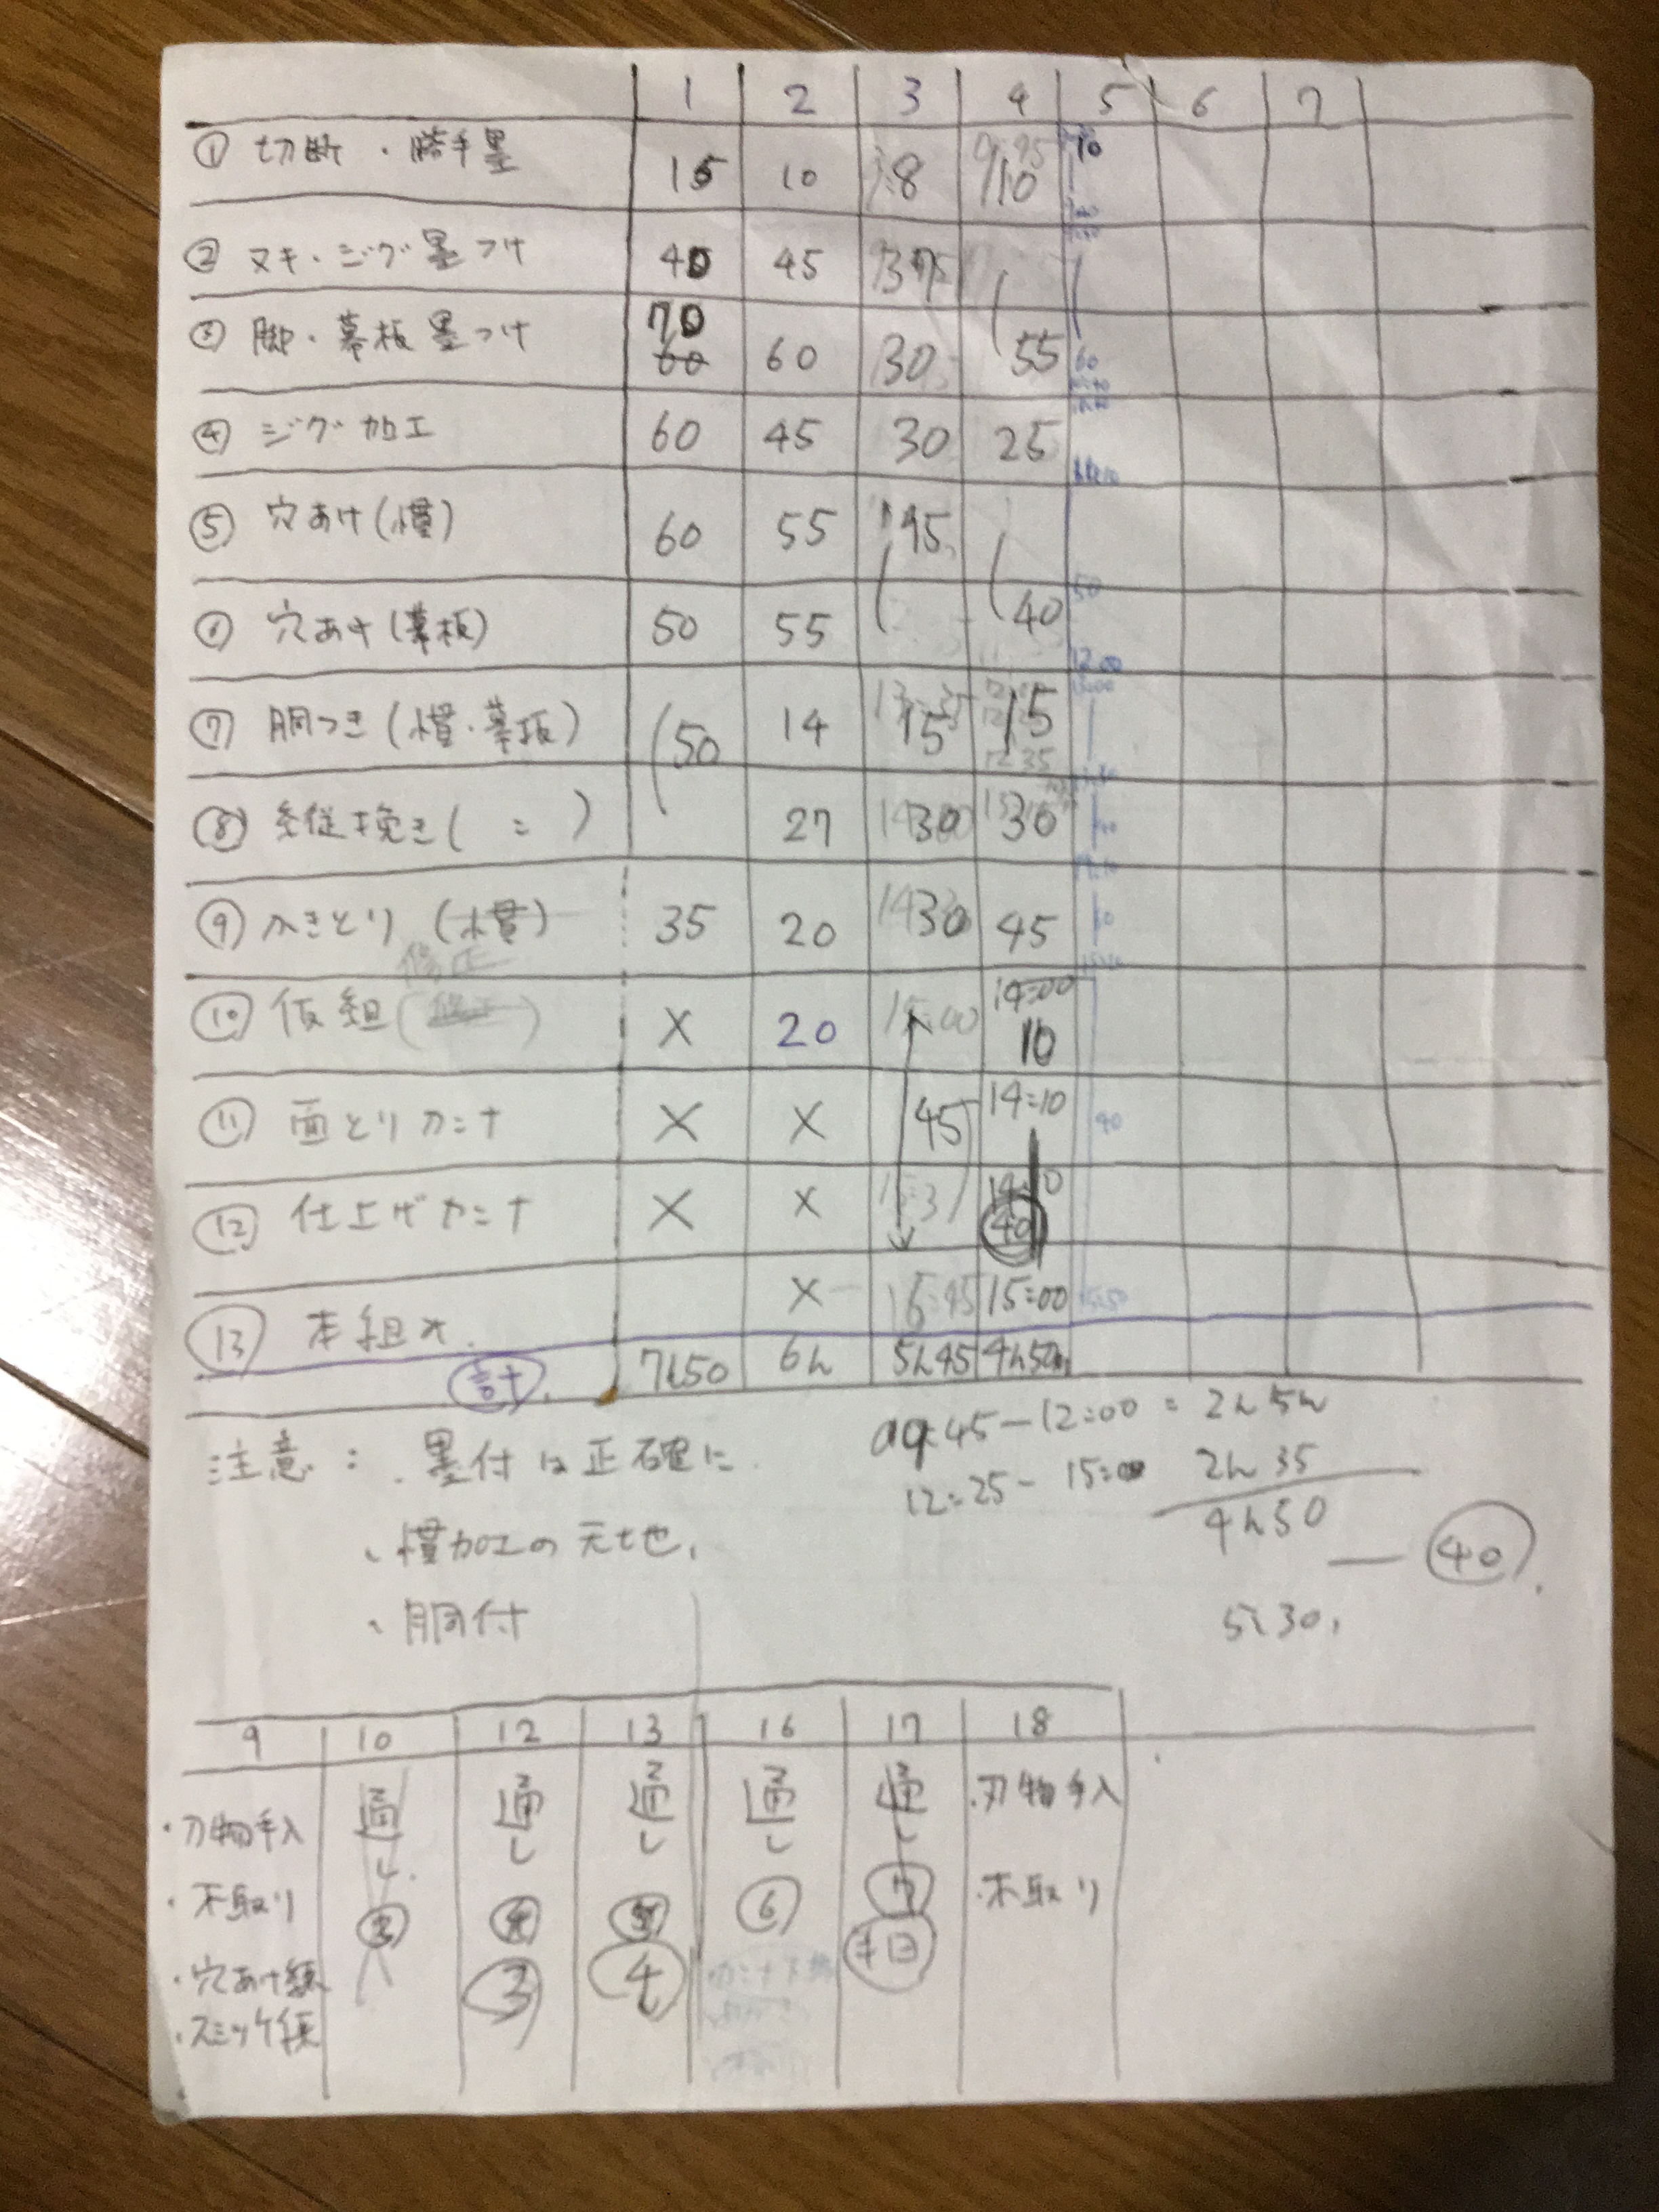 1 2 3 4 5 6 7
① 切断・勝手墨 15 10 8 10 10
② ヌキ・ジグ墨つけ 40 45 37
③ 脚・幕板墨つけ 70 60 60 30 55 60
④ ジグ加工 60 45 30 25
⑤ 穴あけ(横) 60 55 95
⑥ 穴あけ(幕板) 50 55 40 50
12:00
⑦ 胴つき(横・幕板) 50 14 15 15
⑧ 縦挽き( 〃 ) 27 30 30
⑨ かきとり (横) 35 20 30 45
修正
⑩ 仮組 X 20 15:00 14:00
10
⑪ 面とりカンナ X X 45 14:10 40
⑫ 仕上げカンナ X X
40
⑬ 本組〆. X 16:45 15:00 15:50
計. 7h50 6h 5h45 4h50m
注意:、墨付は正確に.
、横加工の天地,
、胴付
09:45-12:00 = 2h5m
12:25-15:00 2h35
4h50 — 40
5:30,
9 10 12 13 16 17 18
・刃物手入 通し 通し 通し 通し 通し ・刃物手入
・木取り 6 7 ・木取り
・穴あけ練 3 4 平日
・スミツケ練